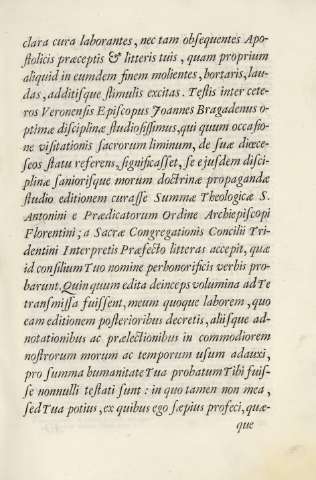 clara cura laborantes, nec tam obsequentes Apo-
stolicis præceptis & litteris tuis, quam proprium
aliquid in eumdem finem molientes, hortaris, lau-
das, additisque stimulis excitas. Testis inter cete-
ros Veronensis Episcopus Joannes Bragadenus o-
ptimæ disciplinæ studiosissimus, qui quum occasio-
ne visitationis sacrorum liminum, de suæ diœce-
seos statu referens, significasset, se ejusdem disci-
plinæ saniorisque morum doctrinæ propagandæ
studio editionem curasse Summæ Theologicæ S.
Antonini e Prædicatorum Ordine Archiepiscopi
Florentini; a Sacræ Congregationis Concilii Tri-
dentini Interpretis Præfecto litteras accepit, quæ
id consilium Tuo nomine perhonorificis verbis pro-
barunt. Quin quum edita deinceps volumina ad Te
transmissa fuissent, meum quoque laborem, quo
eam editionem posterioribus decretis, aliisque ad-
notationibus ac prælectionibus in commodiorem
nostrorum morum ac temporum usum adauxi,
pro summa humanitate Tua probatum Tibi fuis-
se nonnulli testati sunt: in quo tamen non mea,
sed Tua potius, ex quibus ego sæpius profeci, quæ-
que